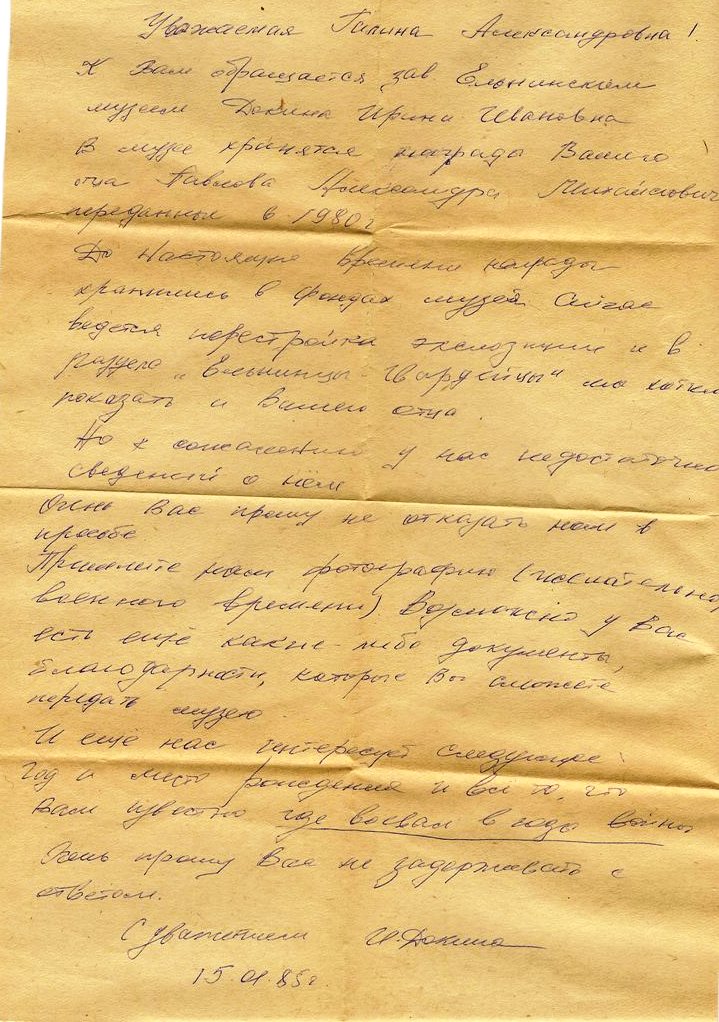 Уважаемая Галина Александровна!
К Вам обращается зав. Ельнинским
музеем Докина Ирина Ивановна
В музе хранятся награды Вашего
отца Павлова Александра Михайлович
переданные в 1980г
До настоящие времени награды
хранились в фондах музея Сейчас
ведется перестройка экспозиции и в
раздела „Ельнинцы-Гвардейцы" мы хотим
показать и Вашего отца.
Но к сожалению у нас недостаточно
сведений о нём
Очень Вас прошу не отказать нам в
просьбе
Пришлите нам фотографию (желательно,
военного времени) Возможно у Вас
есть ещё какие-либо документы,
благодарности, которые Вы сможете
передать музею
И ещё нас интересует следующее:
год и место рождения и всё то, что
Вам известно где воевал в года войны
Очень прошу Вас не задерживать с
ответом.
С уважением И.Докина
15.01.85г.